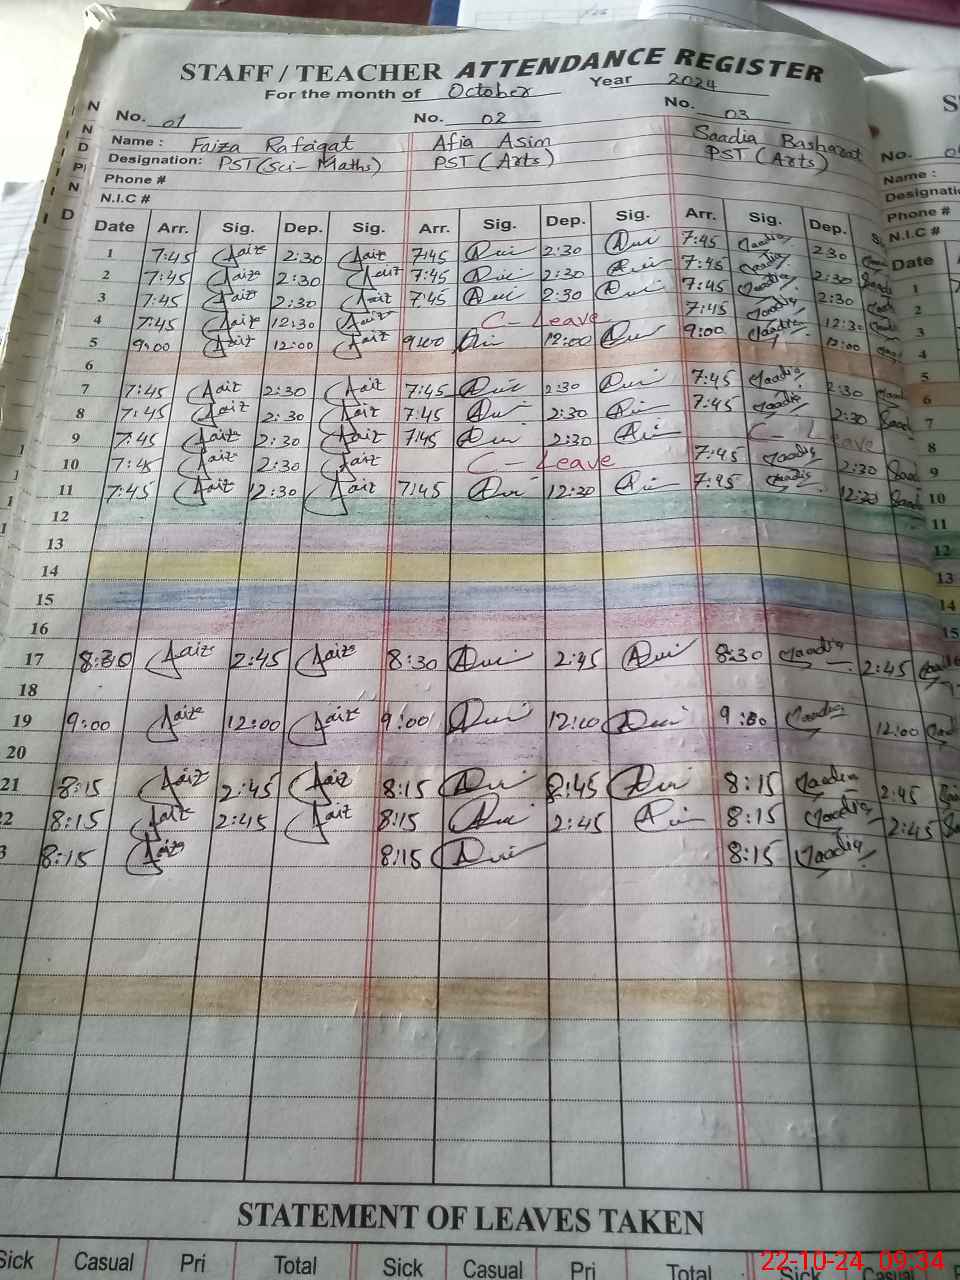 STAFF / TEACHER ATTENDANCE REGISTER
For the month of October Year 2024
No. 01 No. 02 No. 03
Name : Faiza Rafaqat Afia Asim Saadia Basharat
Designation: PST (Sci-Maths) PST (Arts) PST (Arts)
Phone #
N.I.C #
Date Arr. Sig. Dep. Sig. Arr. Sig. Dep. Sig. Arr. Sig. Dep.
1 7:45 Faiz 2:30 Faiz 7:45 2:30 7:45 Saadia 2:30
2 7:45 Faiza 2:30 Faiz 7:45 2:30 7:45 Saadia 2:30
3 7:45 Faiz 2:30 Faiz 7:45 2:30 7:45 Saadia 2:30
4 7:45 Faiz 12:30 Faiz C - Leave 7:45 Saadia 12:30
5 9:00 Faiz 12:00 Faiz 9:00 12:00 9:00 Saadia 12:00
6
7 7:45 Faiz 2:30 Faiz 7:45 2:30 7:45 Saadia 2:30
8 7:45 Faiz 2:30 Faiz 7:45 2:30 7:45 Saadia 2:30
9 7:45 Faiz 2:30 Faiz 7:45 2:30 C - Leave
10 7:45 Faiz 2:30 Faiz C - Leave 7:45 Saadia 2:30
11 7:45 Faiz 12:30 Faiz 7:45 12:30 7:45 Saadia 12:30
12
13
14
15
16
17 8:30 Faiz 2:45 Faiz 8:30 2:45 8:30 Saadia 2:45
18
19 9:00 Faiz 12:00 Faiz 9:00 12:00 9:00 Saadia 12:00
20
21 8:15 Faiz 2:45 Faiz 8:15 2:45 8:15 Saadia 2:45
2 8:15 Faiz 2:45 Faiz 8:15 2:45 8:15 Saadia 2:45
3 8:15 Faiz 8:15 8:15 Saadia
STATEMENT OF LEAVES TAKEN
Sick Casual Pri Total Sick Casual Pri Total Sick Casual
22-10-24 09:34
No.
Name :
Designatio
Phone #
N.I.C #
Date
1
2
3
4
5
6
7
8
9
10
11
12
13
14
15